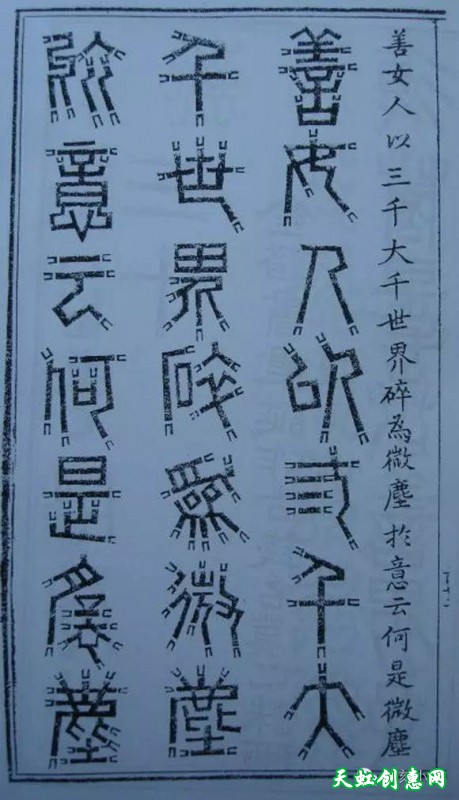 善女人以三千大千世界碎為微塵扵意云何是微塵
善女人以三千大
千世界碎為微塵
於意云何是微塵
天虹创惠网